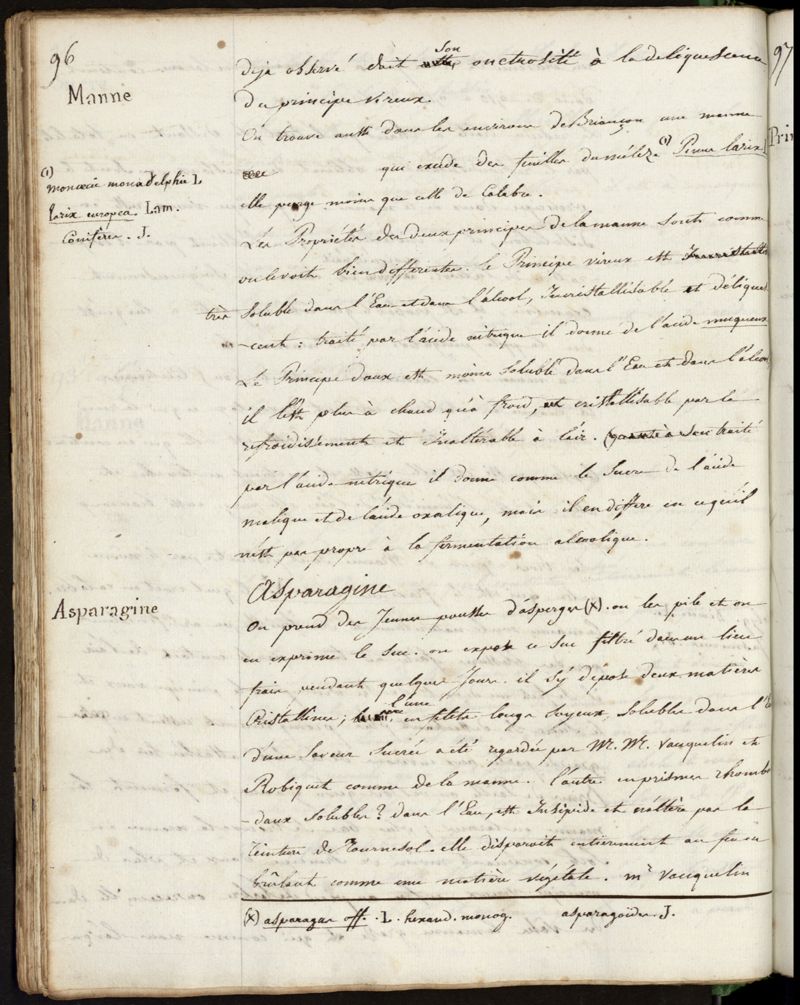 96
Manne
déja observé doit son onctuosité à la deliquescence
du principe vireux.
On trouve aussi dans les environs de Briançon une manne
qui exude des feuilles du mélèze (1) Pinus larix
(1) monœcie monadelphie L
larix europea. Lam.
Conifères. J.
elle purge moins que celle de Calabre.
Les Propriétés des deux principes de la manne sont comme
on le voit bien differentes. le Principe vireux est
très soluble dans l'Eau et dans l'alcool, Incristallisable et déliques
-cent : traité par l'acide nitrique il donne de l'acide muqueux
Le Principe doux est moins soluble dans l'Eau et dans l'alcool
il l'est plus à chaud qu'à froid, est cristallisable par le
refroidissement et Inaltérable à l'air. traité
par l'acide nitrique il donne comme le Sucre de l'acide
malique et de l'acide oxalique, mais il en differe en ce qu'il
n'est pas propre à la fermentation alcoolique.
Asparagine
Asparagine
On prend des Jeunes pousses d'asperges (x). on les pile et on
en exprime le suc. on expose ce suc filtré dans un lieu
frais pendant quelques Jours. il s'y dépose deux matières
Cristallines; l'une en filets longs soyeux, solubles dans l'E
d'une saveur sucrée a été regardée par Mr. Mr. Vauquelin et
Robiquet comme de la manne. l'autre en prismes rhomboï
-daux solubles? dans l'Eau, est Insipide et n'altère pas la
teinture de Tournesol. elle disparoit entierement au feu en
brûlant comme une matière végétale. mr Vauquelin
(x) asparagus off. L. hexand. monog. asparagoïdes. J.
97
Prin